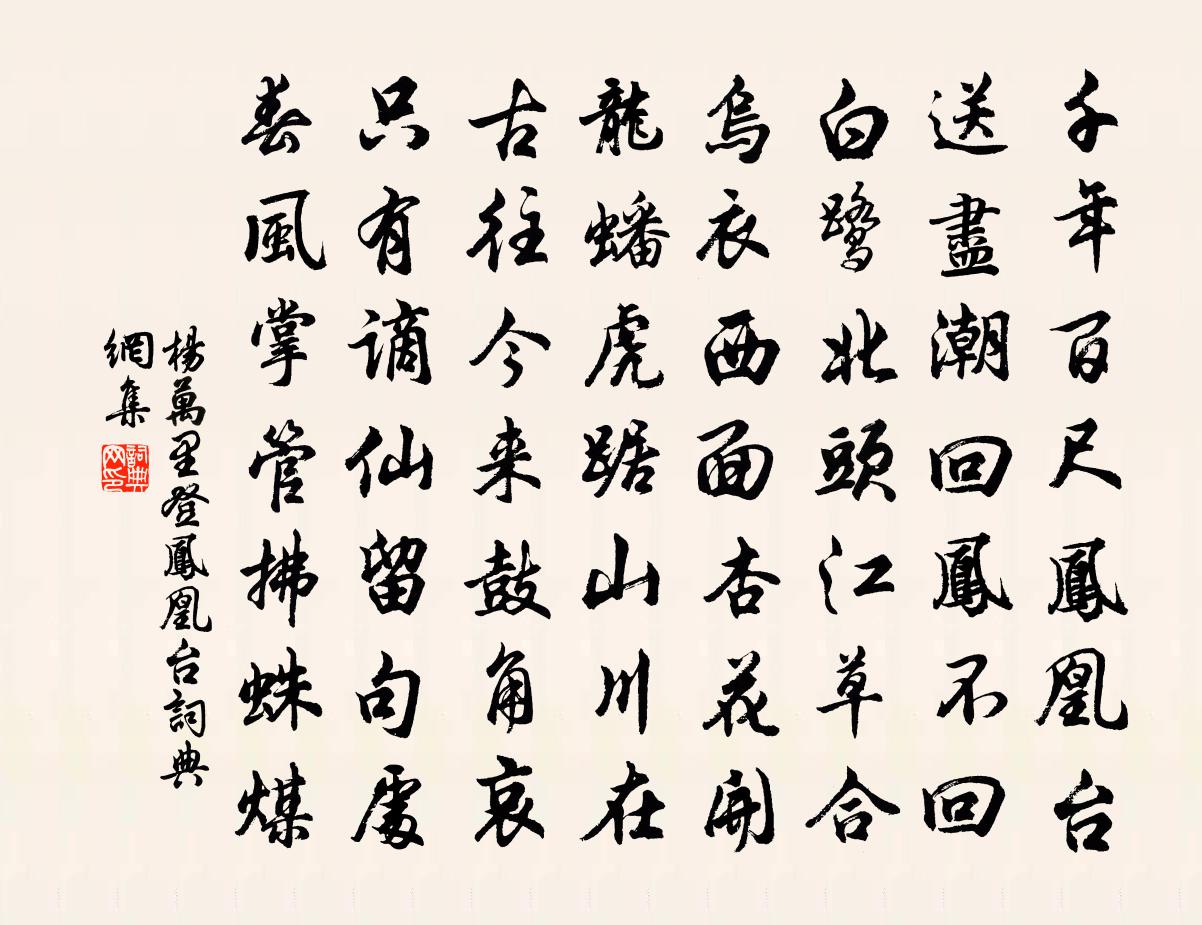 千年百尺鳳凰台
送盡潮回鳳不回
白鷺北頭江草合
烏衣西面杏花開
龍蟠虎踞山川在
古往今来鼓角哀
只有謫仙留句處
春風掌管拂蛛煤
楊萬里登鳳凰台詞典
網集
詞典
网印